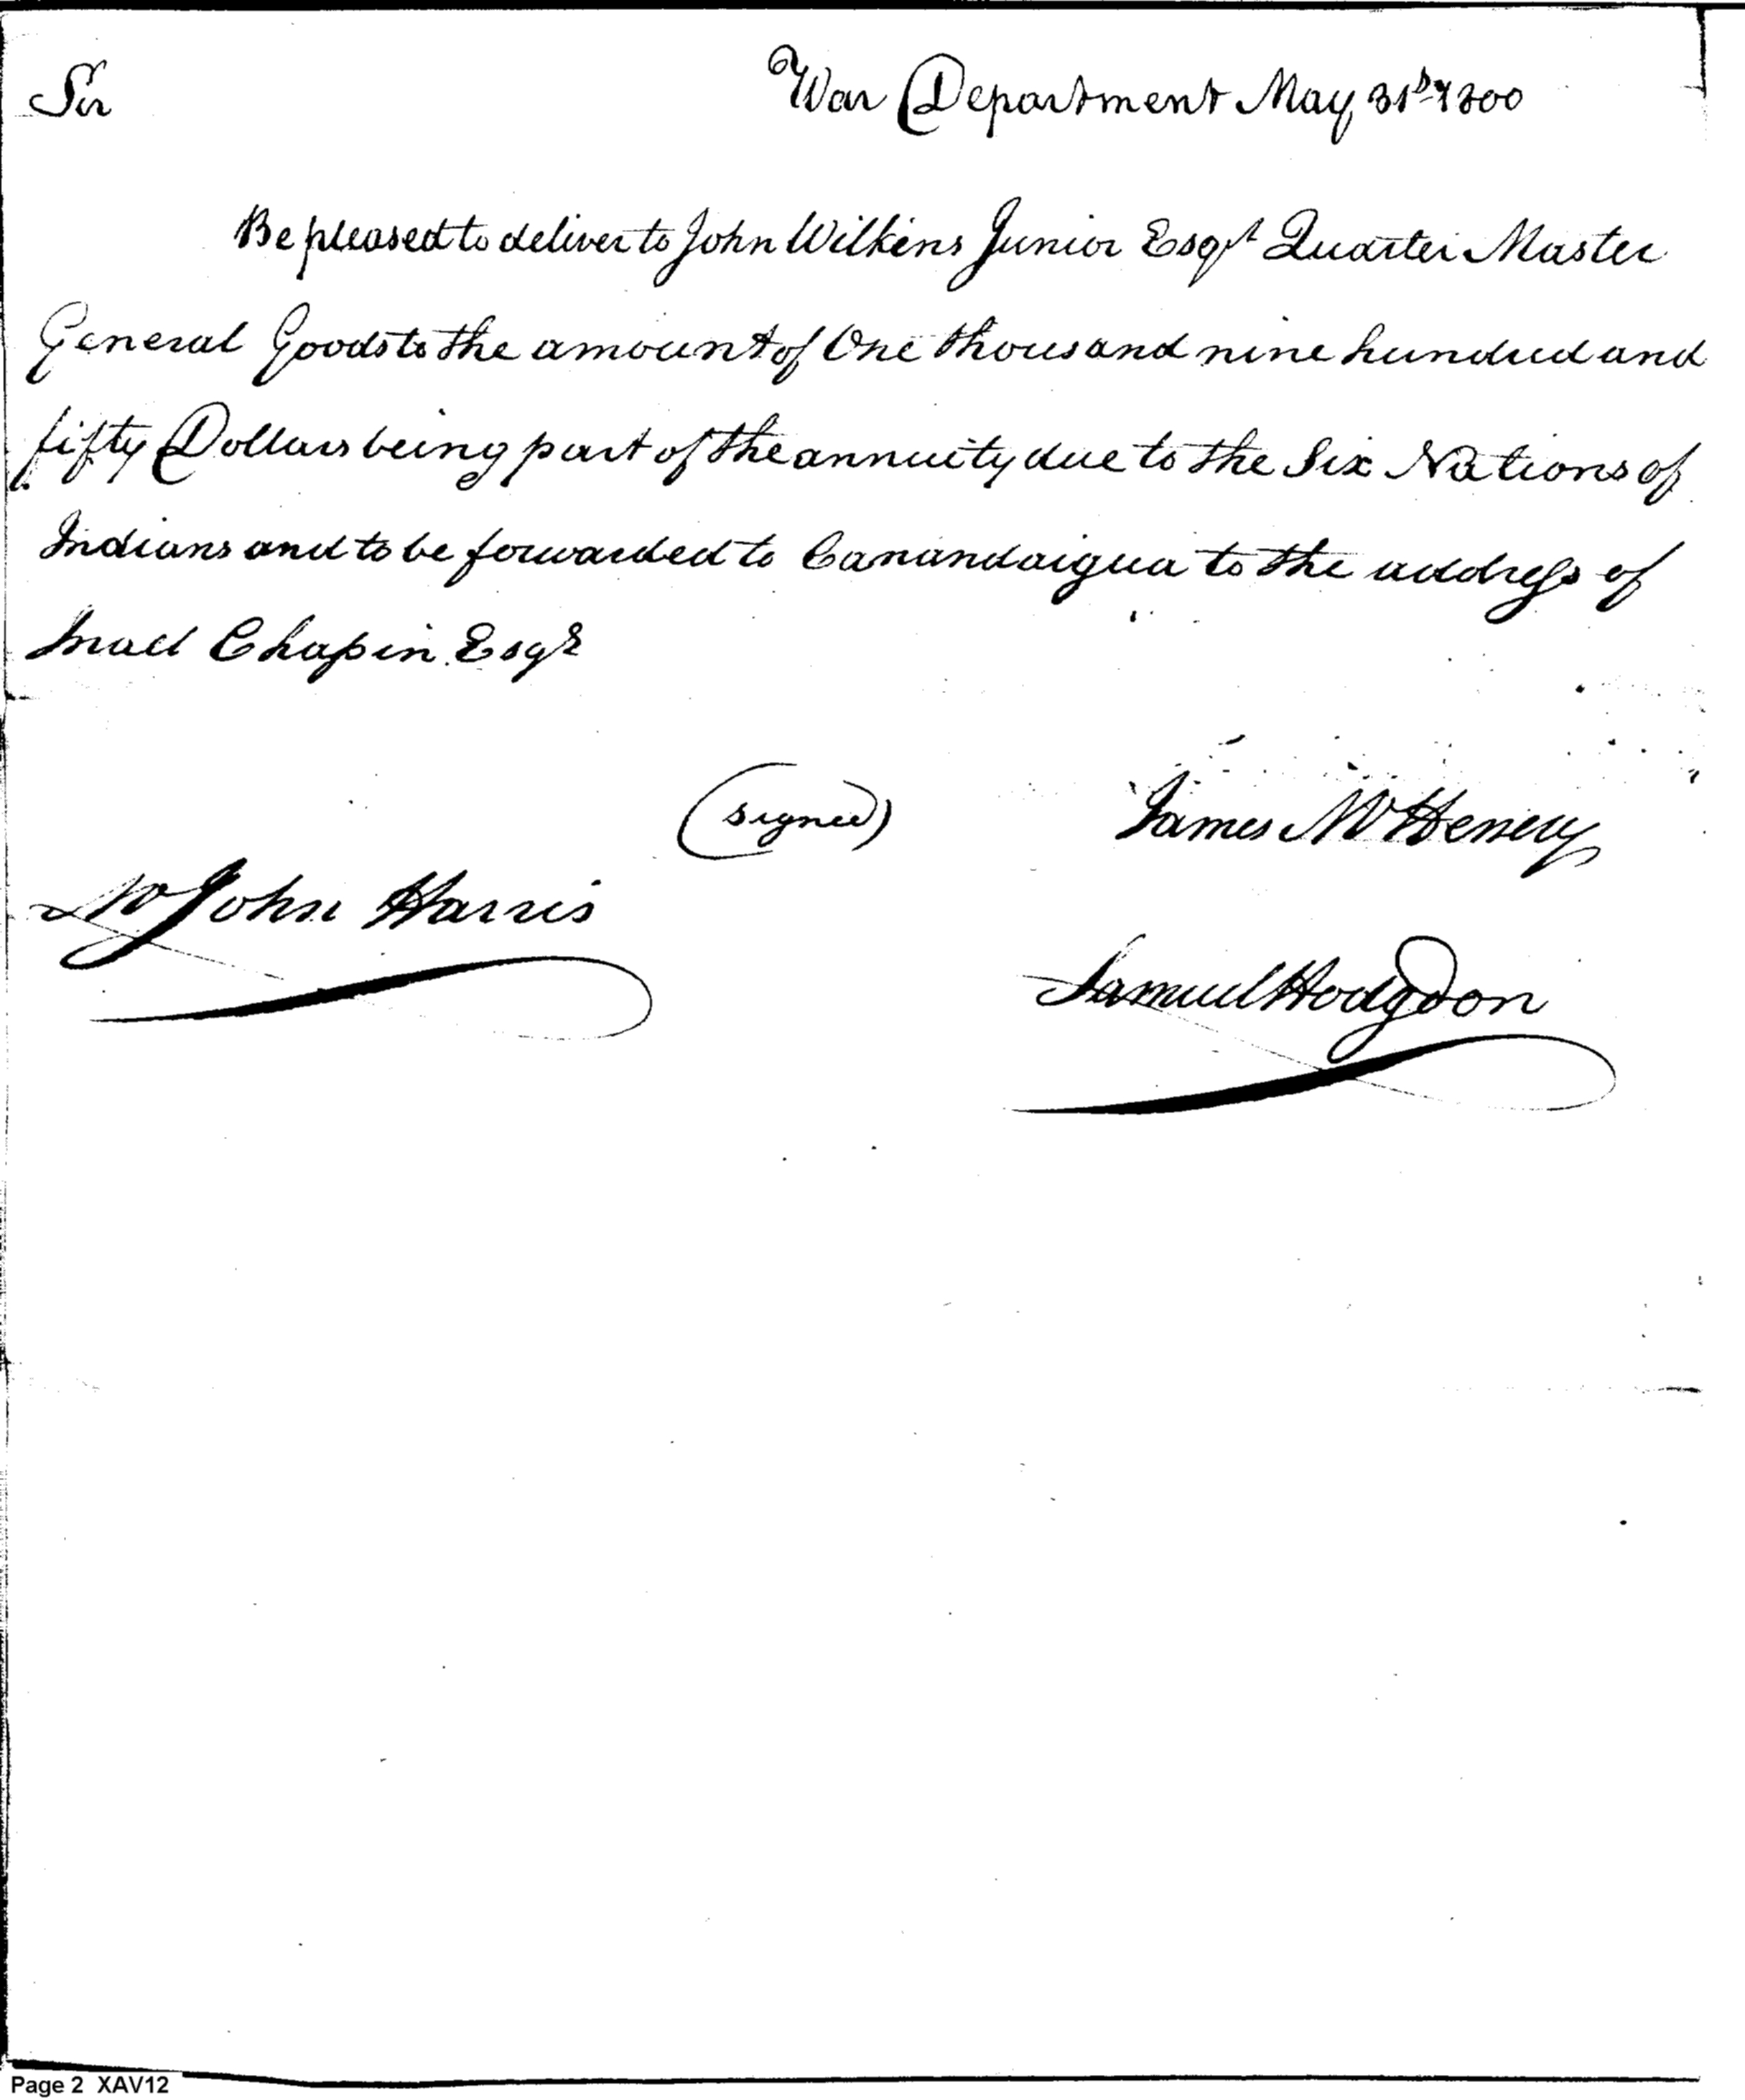 Sir War Department May 31st 1800
Be pleased to deliver to John Wilkins Junior Esqr Quarter Master
General Goods to the amount of One thousand nine hundred and
fifty Dollars being part of the annuity due to the Six Nations of
Indians and to be forwarded to Canandaigua to the address of
Israel Chapin Esqr
(signed) James McHenry
Mr John Harris
Samuel Hodgdon
Page 2 XAV12